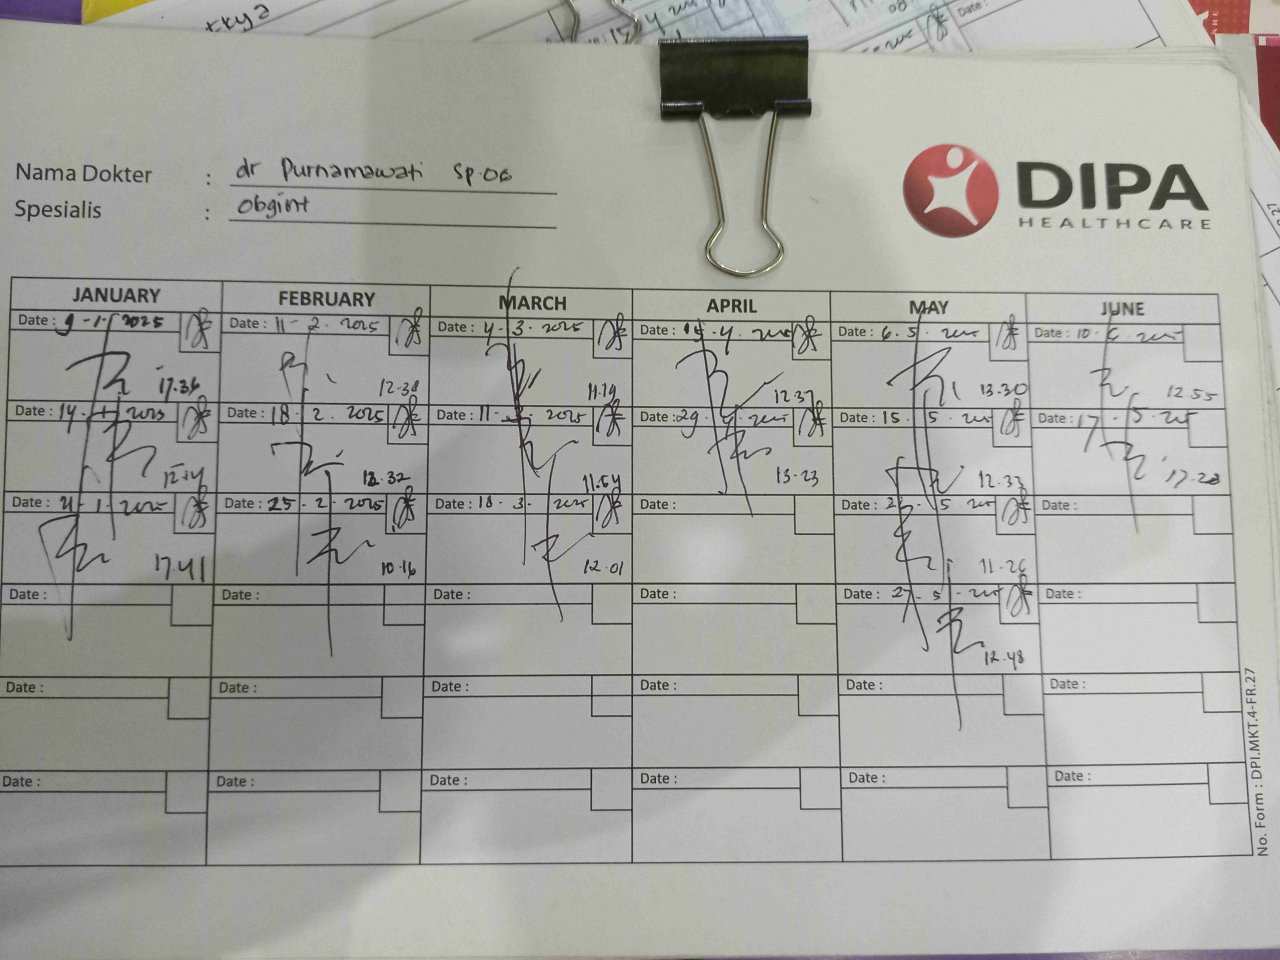 Nama Dokter : dr Purnamawati Sp.OG
Spesialis : Obgint
DIPA
HEALTHCARE
JANUARY FEBRUARY MARCH APRIL MAY JUNE
Date : 9-1-2025 Date : 11-2-2025 Date : 4-3-2025 Date : 15-4-2025 Date : 6-5-2025 Date : 10-6-2025
17.36 12.38 11.19 12.37 13.30 12.55
Date : 14- Date : 18-2-2025 Date : 11- -2025 Date : 29-4-2025 Date : 15-5-2025 Date : 17-5-205
12.32 11.54 13-23 12.33 17.28
Date : -1-2025 Date : 25-2-2025 Date : 18-3-2025 Date : Date : -5-2025 Date :
17.41 10.16 12.01 11.26
Date : Date : Date : Date : Date : 27-5-2025 Date :
12.48
Date : Date : Date : Date : Date : Date :
Date : Date : Date : Date : Date : Date :
No. Form : DPI.MKT.4-FR.27